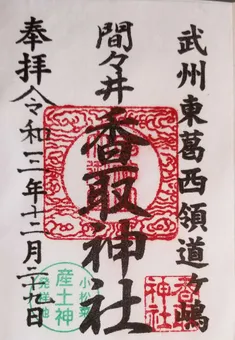 武州東葛西領道ヶ嶋
間々井
香取神社
奉拝
令和三年十二月二十九日
香取
神社
小松菜
産土神
発祥地